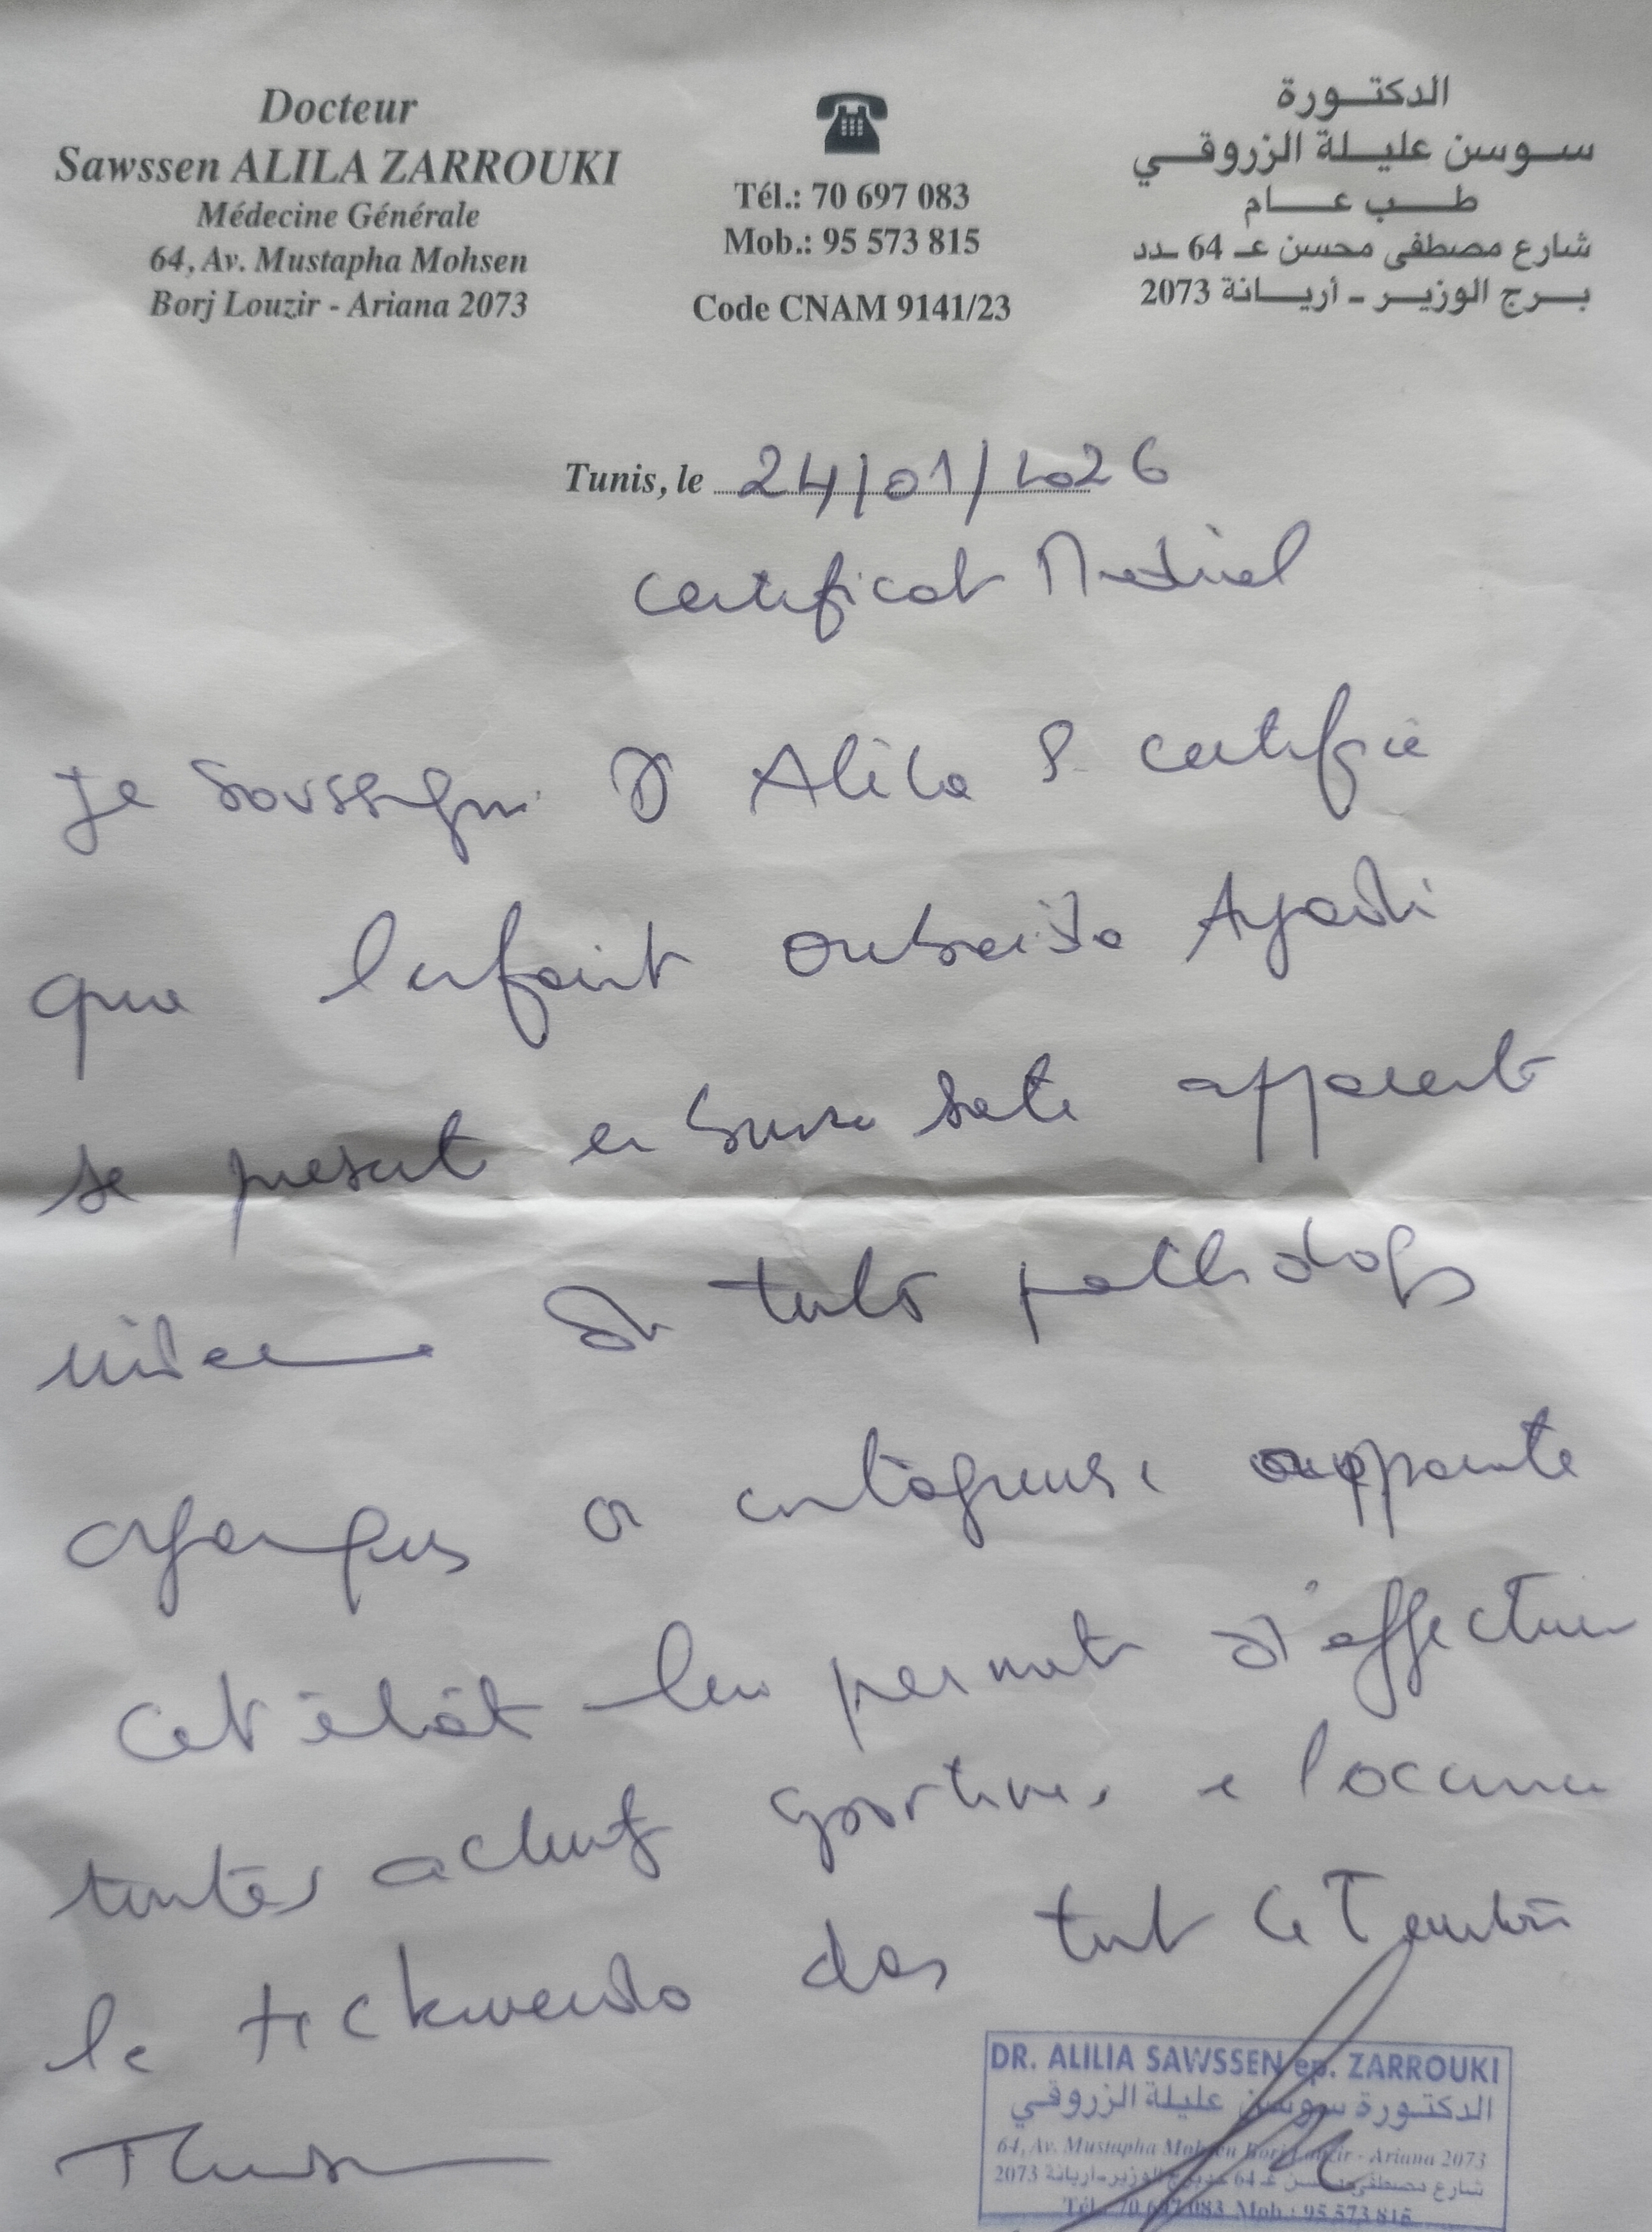 Docteur
Sawssen ALILA ZARROUKI
Médecine Générale
64, Av. Mustapha Mohsen
Borj Louzir - Ariana 2073
Tél.: 70 697 083
Mob.: 95 573 815
Code CNAM 9141/23
الدكتورة
سوسن عليلة الزروقي
طب عام
شارع مصطفى محسن عـ 64 ـدد
برج الوزير - أريانة 2073
Tunis, le 24/01/2026
Certificat Medical
Je soussigné Dr Alila S certifie
que l'enfant Oubaida Ayadi
se presente en bonne santé apparente
indemne de toute pathologie
organique ou contagieuse apparente
Cet état lui permet d'effectuer
toutes activités sportives
le teckwendo dans tout
DR. ALILIA SAWSSEN ep. ZARROUKI
الدكتورة سوسن عليلة الزروقي
64, Av. Mustapha Mohsen Borj Louzir - Ariana 2073
شارع مصطفى محسن عـ 64 ـدد برج الوزير - أريانة 2073
Tél.: 70 697 083 Mob.: 95 573 815